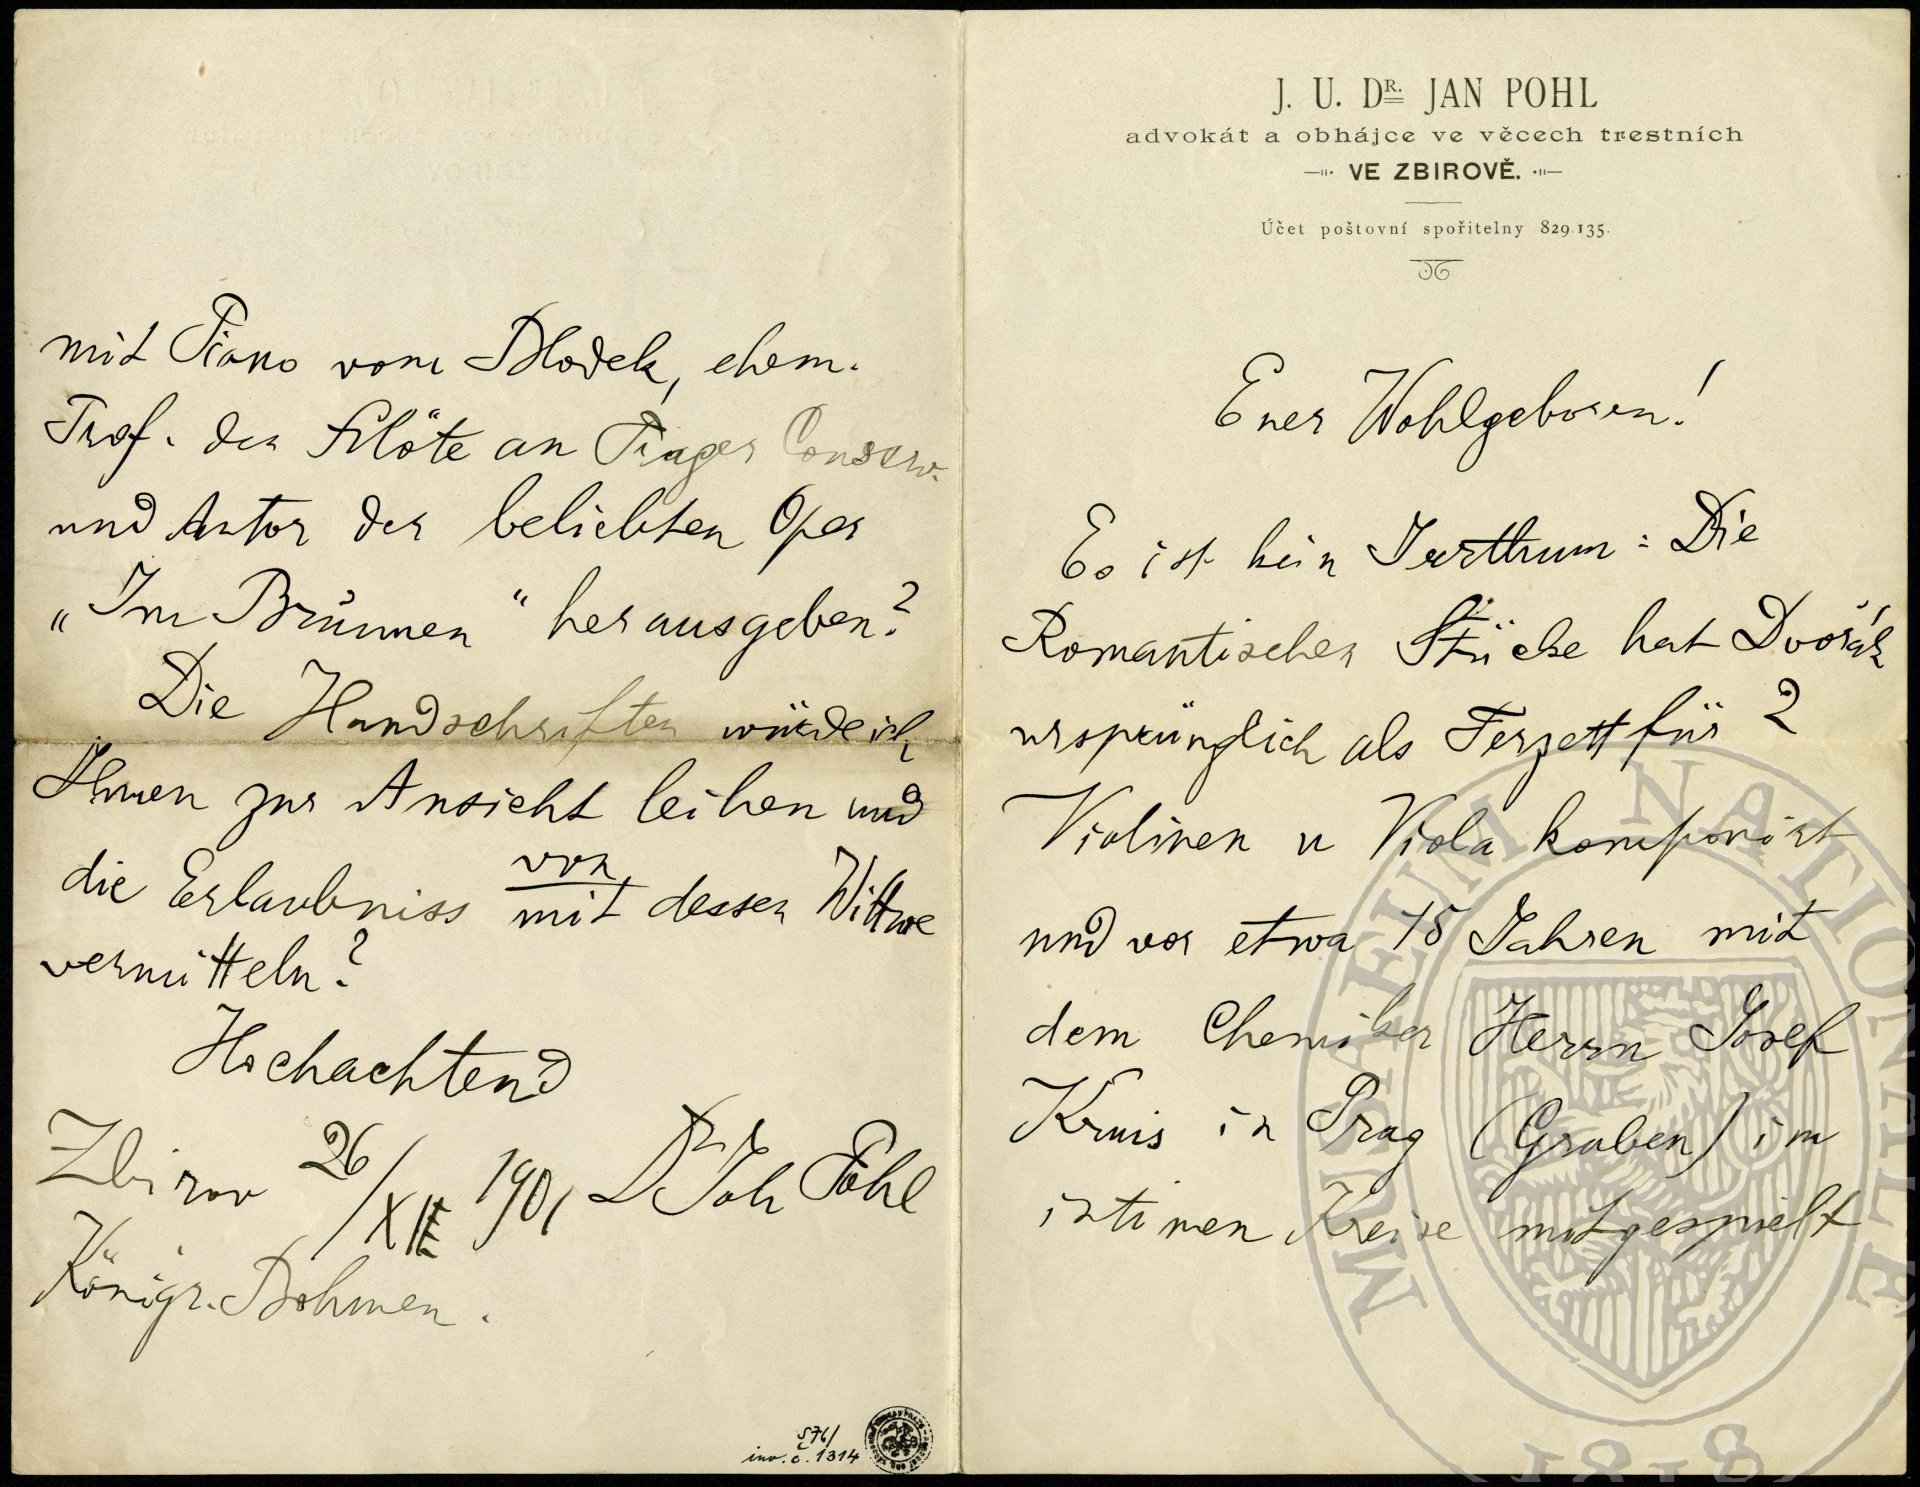 J. U. DR. JAN POHL
advokát a obhájce ve věcech trestních
VE ZBIROVĚ.
Účet poštovní spořitelny 829.135.
Euer Wohlgeboren!
Es ist kein Irrthum: Die
Romantischen Stücke hat Dvořák
ursprünglich als Terzett für 2
Violinen u Viola komponirt
und vor etwa 15 Jahren mit
dem Chemiker Herrn Josef
Kruis in Prag (Graben) im
intimen Kreise mitgespielt
mit Piano vom Blodek, ehem.
Prof. der Flöte an Prager Conserv.
und Autor der beliebten Oper
„Im Brunnen“ herausgeben?
Die Handschriften würde ich
Ihnen zur Ansicht leihen und
von
die Erlaubniss mit dessen Wittwe
vermitteln?
Hochachtend
Zbirov 26/XII 1901 Dr Joh Pohl
Königr. Böhmen.
S76/
inv. č. 1314
MUSAEUM NATIONALE
1818